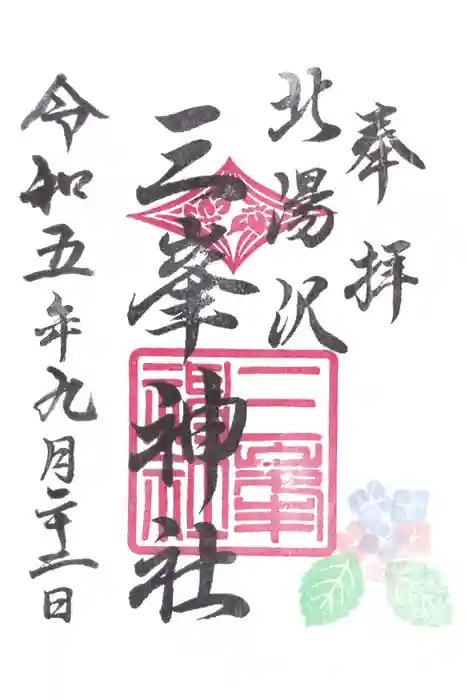 奉拝
北湯沢
三峯神社
三峯神社
令和五年九月二十一日